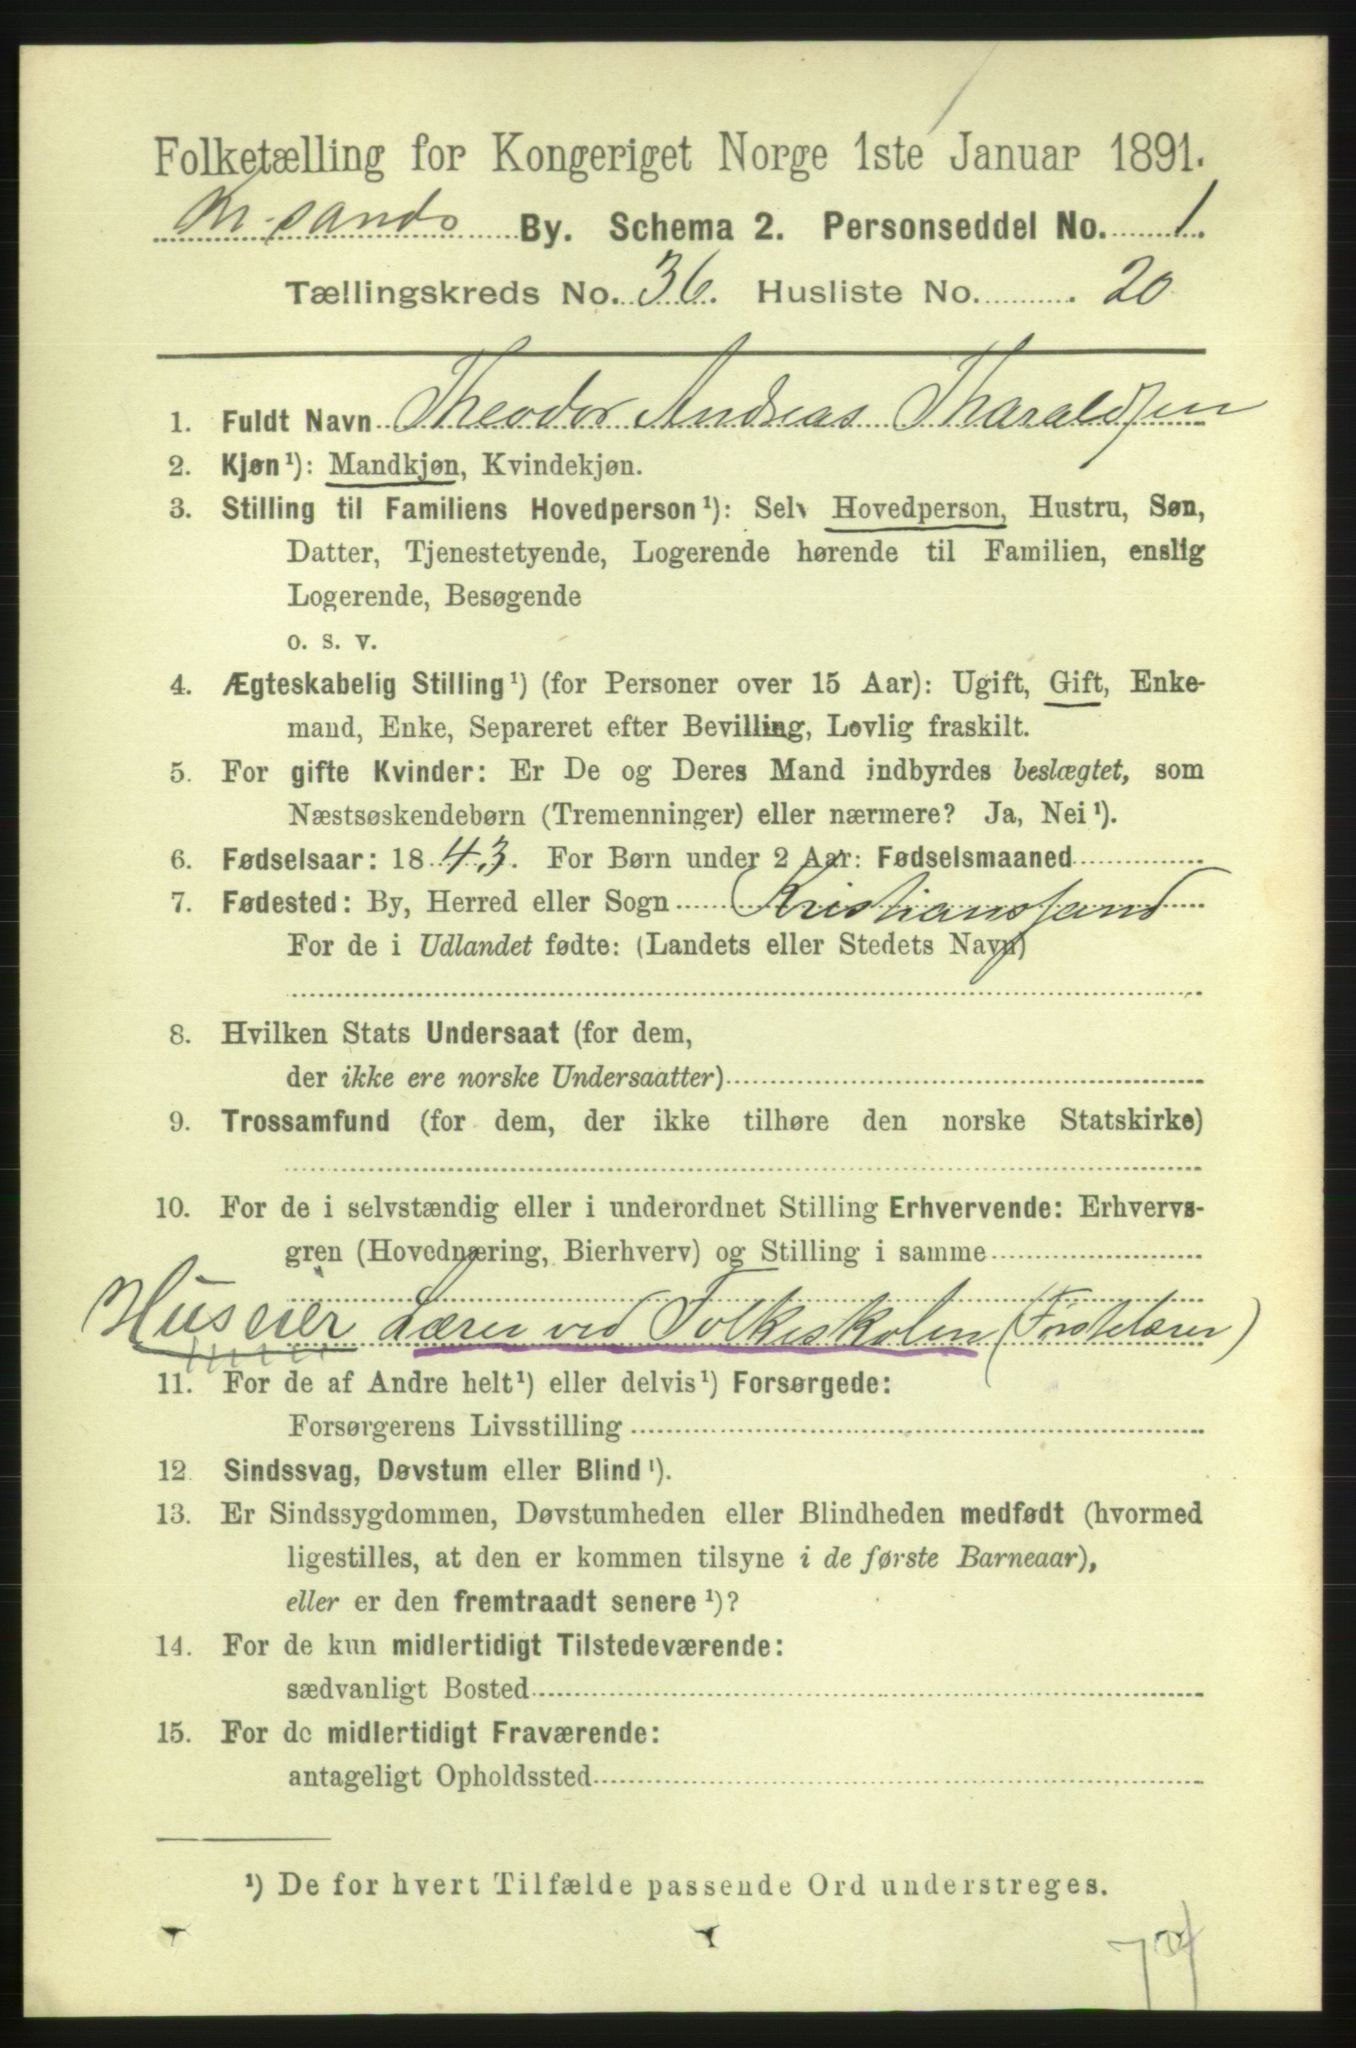 Folketælling for Kongeriget Norge 1ste Januar 1891.
Kr.sands By. Schema 2. Personseddel No. 1.
Tællingskreds No. 36. Husliste No. 20
1. Fuldt Navn Theodor Andreas Tharaldsen
2. Kjøn¹): Mandkjøn, Kvindekjøn.
3. Stilling til Familiens Hovedperson¹): Selv Hovedperson, Hustru, Søn,
Datter, Tjenestetyende, Logerende hørende til Familien, enslig
Logerende, Besøgende
o. s. v.
4. Ægteskabelig Stilling¹) (for Personer over 15 Aar): Ugift, Gift, Enke-
mand, Enke, Separeret efter Bevilling, Lovlig fraskilt.
5. For gifte Kvinder: Er De og Deres Mand indbyrdes beslægtet, som
Næstsøskendebørn (Tremenninger) eller nærmere? Ja, Nei¹).
6. Fødselsaar: 1843. For Børn under 2 Aar: Fødselsmaaned
7. Fødested: By, Herred eller Sogn Kristianssand
For de i Udlandet fødte: (Landets eller Stedets Navn)
8. Hvilken Stats Undersaat (for dem,
der ikke ere norske Undersaatter)
9. Trossamfund (for dem, der ikke tilhøre den norske Statskirke)
10. For de i selvstændig eller i underordnet Stilling Erhvervende: Erhvervs-
gren (Hovednæring, Bierhverv) og Stilling i samme
Huseier Lærer ved Folkeskolen (Førstelærer)
11. For de af Andre helt¹) eller delvis¹) Forsørgede:
Forsørgerens Livsstilling
12. Sindssvag, Døvstum eller Blind¹).
13. Er Sindssygdommen, Døvstumheden eller Blindheden medfødt (hvormed
ligestilles, at den er kommen tilsyne i de første Barneaar),
eller er den fremtraadt senere¹)?
14. For de kun midlertidigt Tilstedeværende:
sædvanligt Bosted
15. For de midlertidigt Fraværende:
antageligt Opholdssted
¹) De for hvert Tilfælde passende Ord understreges.